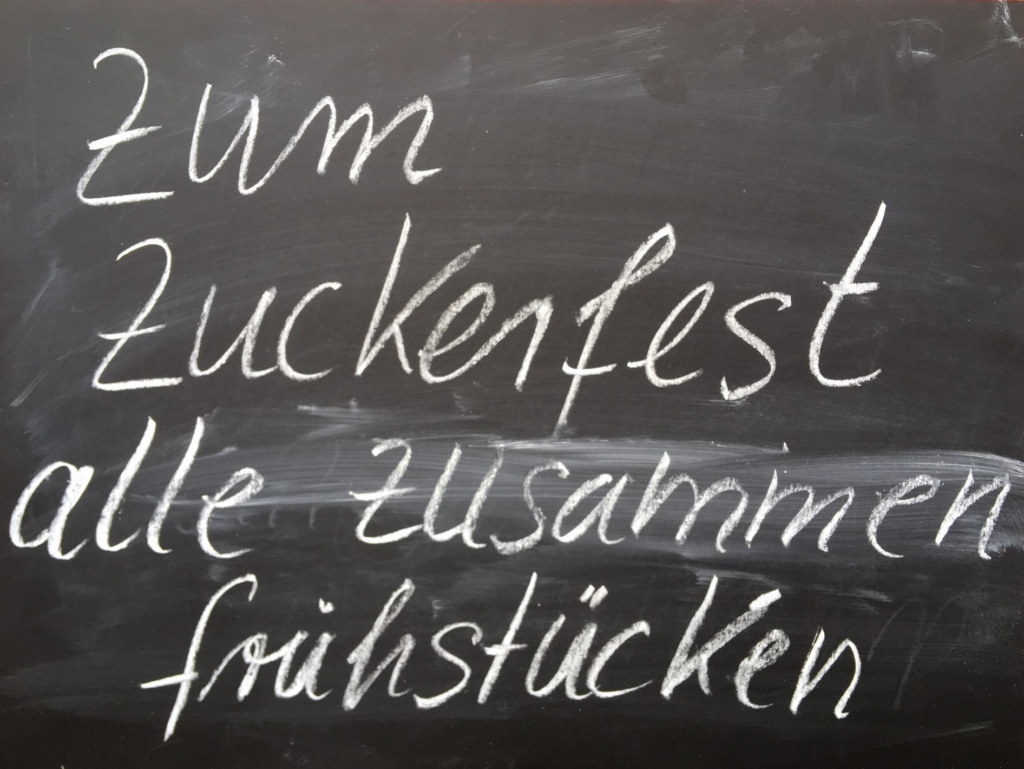 Zum
Zuckerfest
alle zusammen
frühstücken